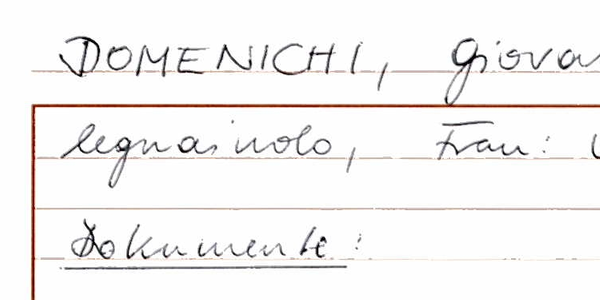 DOMENICHI, Giova
legnaiuolo, Frau:
Dokumente: